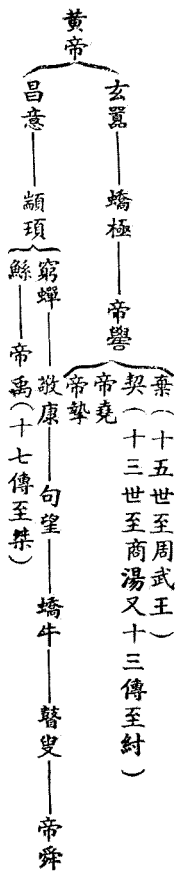 黃帝
玄囂——蟜極——帝嚳
棄（十五世至周武王）
契（十三世至商湯又十三傳至紂）
帝堯
帝摯
昌意——顓頊
窮蟬——敬康——句望——蟜牛——瞽叟——帝舜
鯀——帝禹（十七傳至桀）